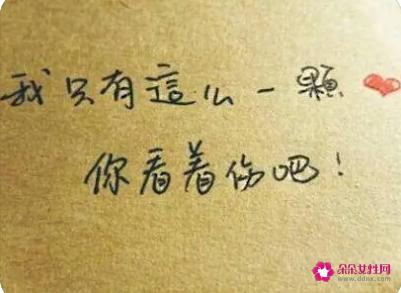 我只有這么一顆❤
你看着伤吧!
朵朵女性网
www.ddnx.com